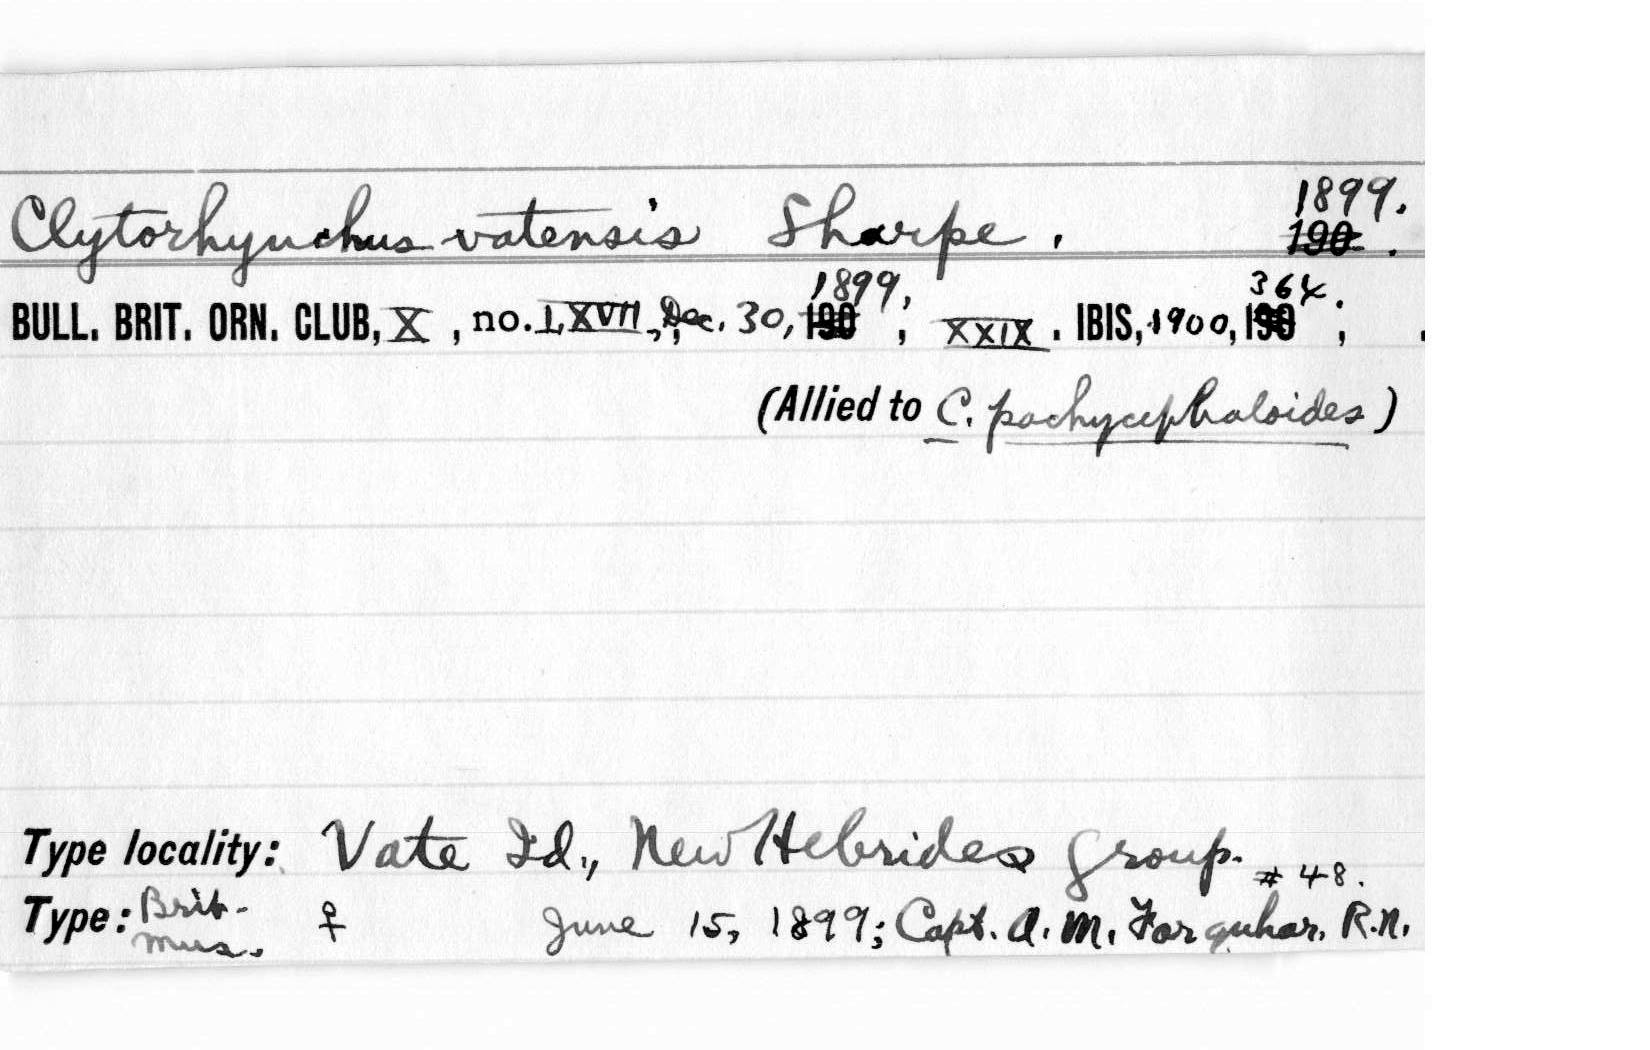 1899.
Clytorhynchus vatensis Sharpe. 190 .
1899, 364.
BULL. BRIT. ORN. CLUB, X , no. LXVII, Dec. 30, 190 ; XXIX . IBIS, 1900, 190 ; .
(Allied to C. pachycephaloides)
Type locality: Vate Id., New Hebrides group.
# 48.
Type: Brit. ♀ June 15, 1899; Capt. A. M. Farquhar, R.N.
Mus.